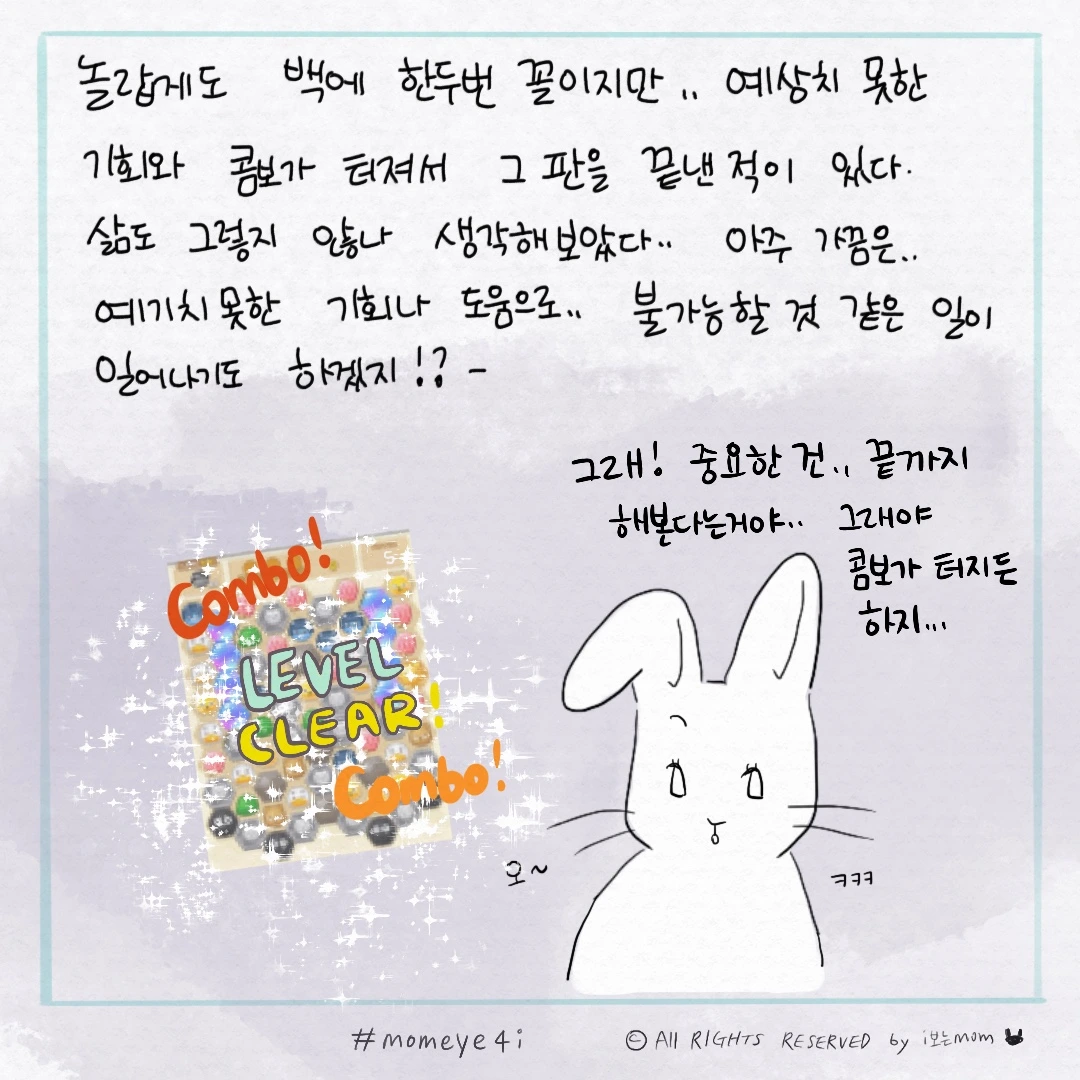 놀랍게도 백에 한두번 꼴이지만.. 예상치 못한
기회와 콤보가 터져서 그 판을 끝낸 적이 있다.
삶도 그렇지 않나 생각해보았다.. 아주 가끔은..
예기치 못한 기회나 도움으로.. 불가능할 것 같은 일이
일어나기도 하겠지!? -
그래! 중요한 건.. 끝까지
해본다는거야.. 그래야
콤보가 터지든
하지...
Combo!
LEVEL
CLEAR!
Combo!
오~
ㅋㅋㅋ
#momeye4i
© All RIGHTS RESERVED by i보는mom